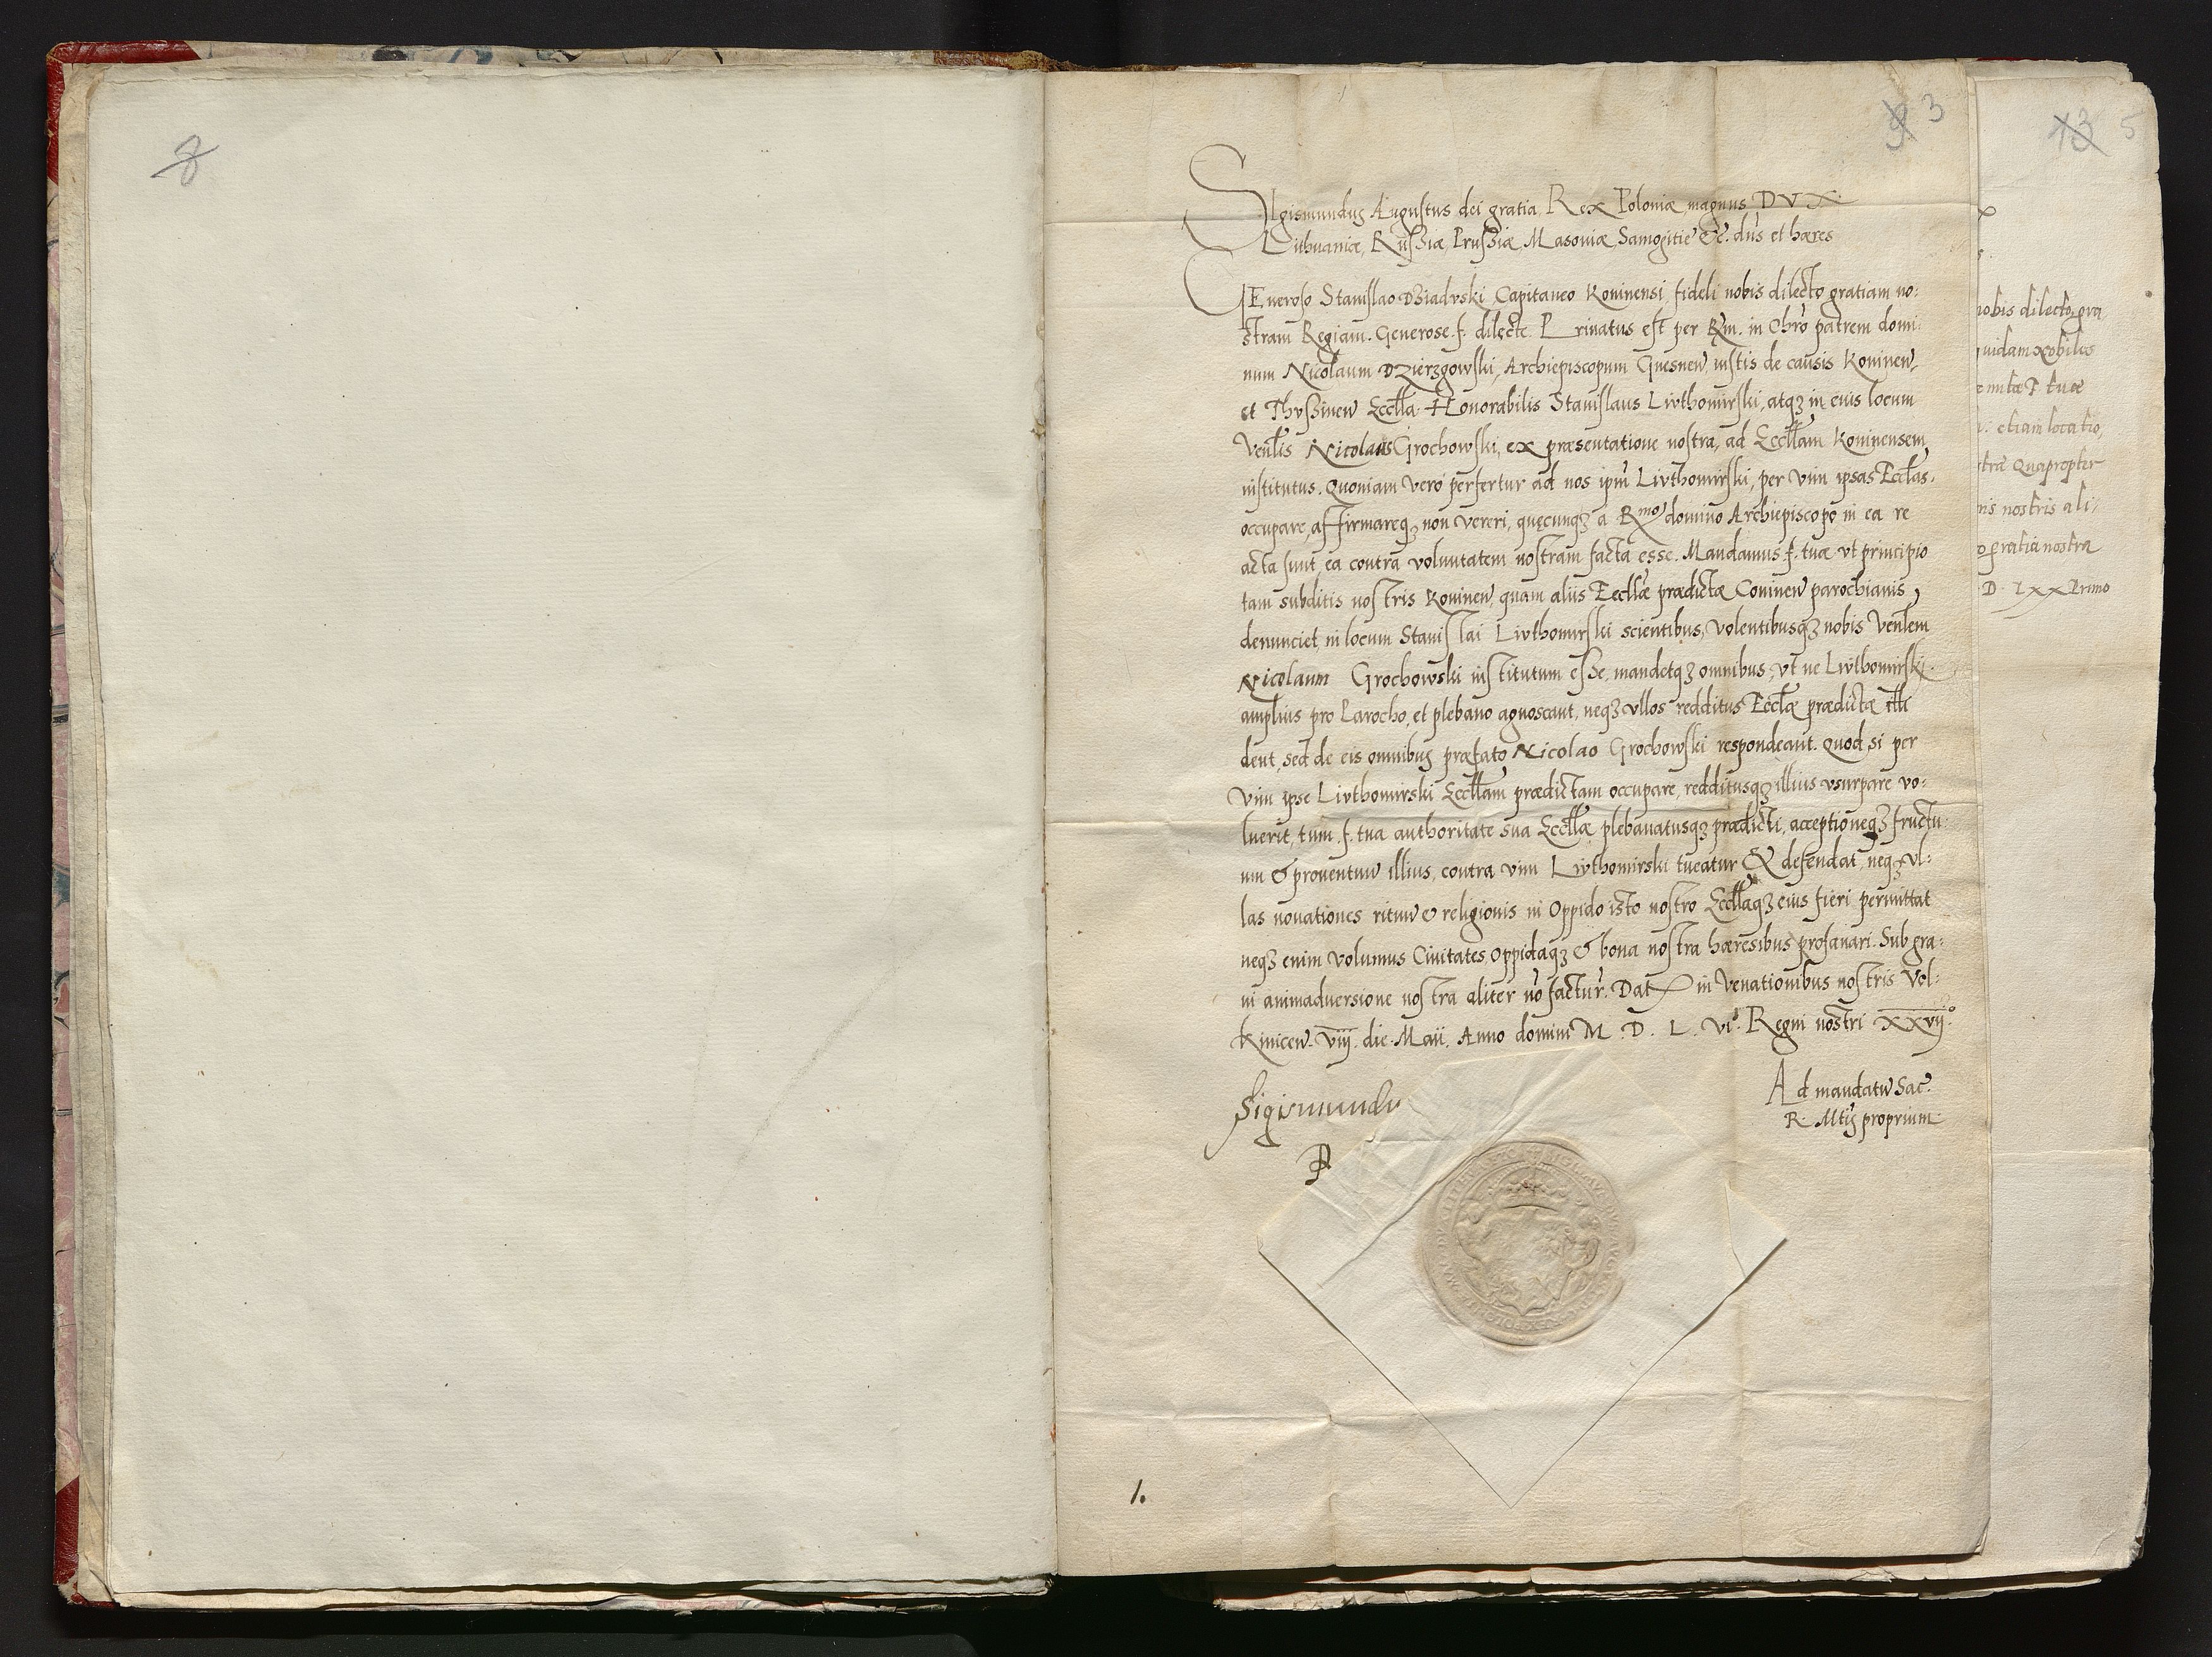 8
9 3
13 5
Sigismundus Augustus dei gratia Rex Poloniæ, magnus DVX
Lithuaniæ, Russiæ, Prussiæ, Masoviæ, Samogitiæ &c. dns et hæres
GEneroso Stanislao Dziadvski Capitaneo Koninensi, fideli nobis dilecto, gratiam no:
stram Regiam. Generose. f. dilecte. Privatus est per Rm. in Chro patrem domi:
num Nicolaum Dzierzgowski, Archiepiscopum Gnesnen, iustis de causis Koninen,
et Thussinen Ecclla Honorabilis Stanislaus Livthomirski, atqz in eius locum
Venlis Nicolaus Grochowski, ex præsentatione nostra, ad Eccllam Koninensem
institutus. Quoniam vero perfertur ad nos ipm Livthomirski, per vim ipsas Ecclas.
occupare, affirmareqz non vereri, quęcunqz a Rmo domino Archiepiscopo in ea re
acta sunt, ea contra voluntatem nostram facta esse. Mandamus f. tuæ vt principio
tam subditis nostris Koninen, quam aliis Eccllæ prædictæ Coninen parochianis,
denunciet, in locum Stanislai Livthomirski scientibus, volentibusqz nobis Venlem
Nicolaum Grochowski institutum esse, mandetqz omnibus, vt ne Livthomirski
amplius pro Parocho, et plebano agnoscant, neqz vllos redditus Ecclæ prædictæ illi
dent, sed de eis omnibus præfato Nicolao Grochowski respondeant. Quod si per
vim ipse Livthomirski Eccllam prædictam occupare, redditusqz illius vsurpare vo:
luerit, tum f. tua authoritate sua Eccllæ plebanatusqz prædicti, acceptioneqz fructu:
um & proventuu illius, contra vim Livthomirski tueatur & defendat, neqz vl:
las novationes rituu & religionis in Oppido isto nostro Ecclaqz eius fieri permittat
neqz enim volumus Civitates, Oppidaqz & bona nostra hæresibus profanari. Sub gra:
vi animadversione nostra aliter no factur. Dat in Venationibus nostris Vol:
kinicen. viij. die. Maii. Anno domini M. D. L. vi. Regni nostri xxvij.
Sigismundu
Ad mandatu Sac.
R. Mtis proprium
1.
nobis dilecto, gra
quidam Nobiles
etiam locatio,
stra Quapropter
nis nostris ali:
gratia nostra
D. Lxx Primo